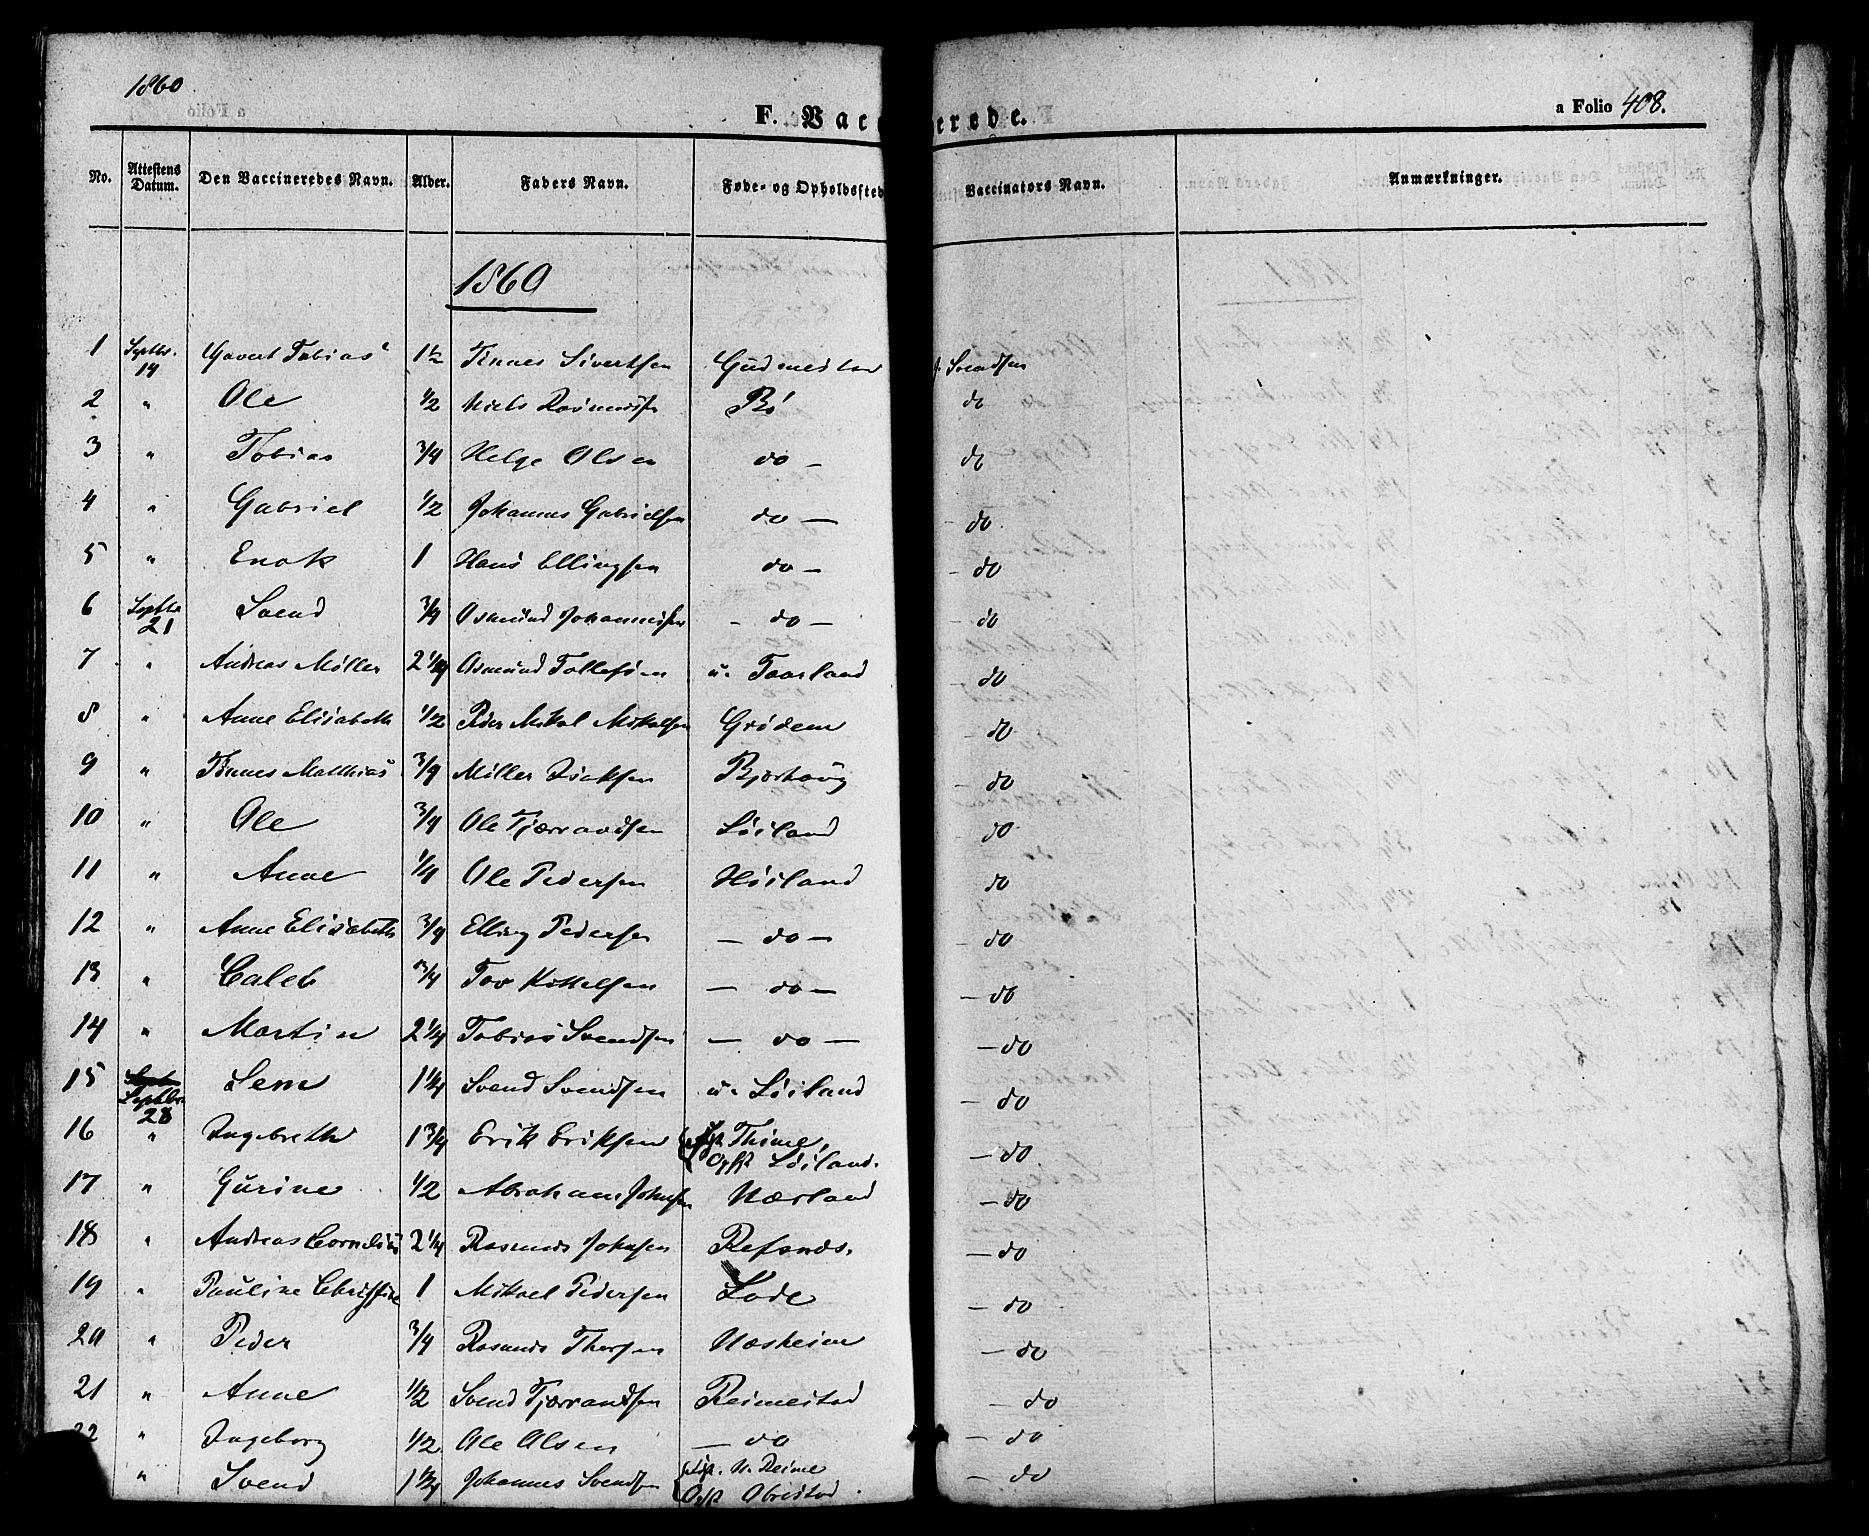 1860
F. Vac erede. a Folio 408.
No. Attestens Datum. Den Vaccineredes Navn. Alder. Faders Navn. Føde- og Opholdssted Vaccinators Navn. Anmærkninger.
1860
1 Septbr. 14 Govert Tobias 1½ Tønnes Sivertsen Gudmestad Svendsen
2 " Ole ½ Niels Rasmussen Bø do
3 " Tobias ¾ Helge Olsen do — do
4 " Gabriel ½ Johannes Gabrielsen do — — do
5 " Enok 1 Hans Ellingsen do — — do
6 Septbr 21 Svend ¾ Osmund Johannessen — do — — do
7 " Andreas Møller 2¼ Osmund Tollefsen u. Taarland — do
8 " Anne Elisabeth ½ Peder Mikal Mikalsen Grødem — do
9 " Tønnes Matthias ¾ Møller Isaksen Bjorhaug — do
10 " Ole ¾ Ole Tjærrandsen Løiland — do
11 " Anne ¼ Ole Pedersen Høiland do
12 " Anne Elisabeth ¾ Elling Pedersen — do — — do
13 " Caleb ¾ Tov Kittelsen — do — — do
14 " Martin 2¼ Tobias Svendsen — do — — do
15 Septbr. 28 Sem 1¼ Svend Svendsen u. Løiland — do
16 " Ingebreth 1¾ Erik Eriksen Thime, Opst Løiland. — do
17 " Gurine ½ Abraham Johnsen Nærland — do
18 " Andreas Cornelius 2¼ Rasmus Johnsen Refsnæs. — do
19 " Pauline Christine 1 Mikael Pedersen Lode — do
20 " Peder ¾ Rasmus Thorsen Næsheim — do
21 " Anne ½ Svend Tjærrandsen Reimestad — do
22 " Ingeborg ½ Ole Olsen — do — do
" Svend 1¾ Johannes Svendsen N. Reime Opst Obrestad. — do